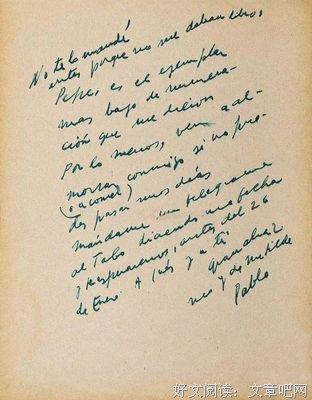 No te lo mandé
antes porque no me daban libro,
Pepe, es el ejemplar
mas bajo de numera-
ción que me dieron
Por lo menos, ven a al-
morzar conmigo si no pue-
(o a comer)
des pasar unos días
mándame un telegrama
al Tabo diciendo una fecha
y te esperaremos, antes del 26
de Enero. A Inés y a ti
gran abrazo
mio y de Matilde
Pablo
好文阅读: 文章吧网